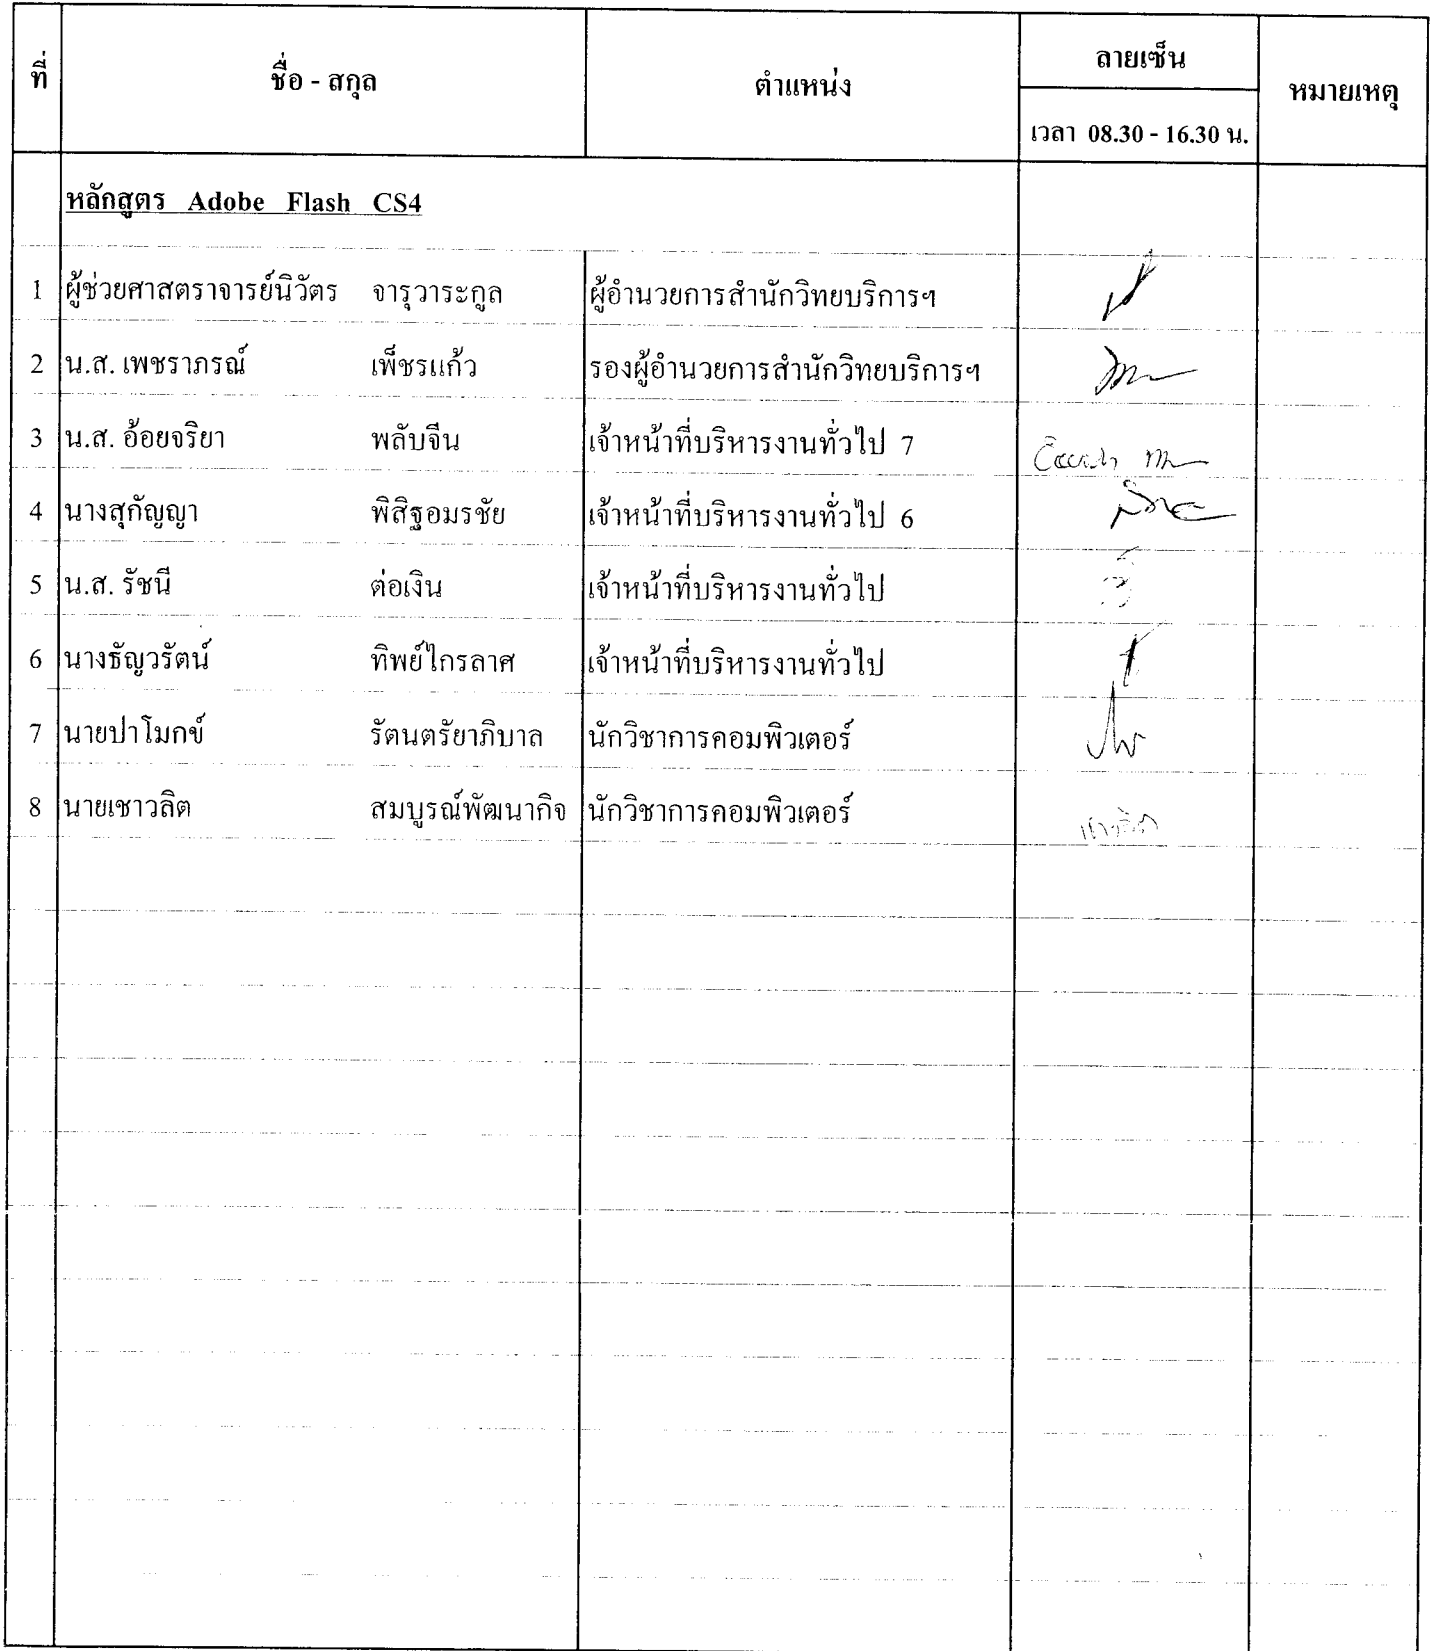 ที่ ชื่อ - สกุล ตำแหน่ง ลายเซ็น หมายเหตุ
เวลา 08.30 - 16.30 น.
หลักสูตร Adobe Flash CS4
1 ผู้ช่วยศาสตราจารย์นิวัตร จารุวาระกูล ผู้อำนวยการสำนักวิทยบริการฯ
2 น.ส. เพชราภรณ์ เพ็ชรแก้ว รองผู้อำนวยการสำนักวิทยบริการฯ
3 น.ส. อ้อยจริยา พลับจีน เจ้าหน้าที่บริหารงานทั่วไป 7
4 นางสุกัญญา พิสิฐอมรชัย เจ้าหน้าที่บริหารงานทั่วไป 6
5 น.ส. รัชนี ต่อเงิน เจ้าหน้าที่บริหารงานทั่วไป
6 นางธัญวรัตน์ ทิพย์ไกรลาศ เจ้าหน้าที่บริหารงานทั่วไป
7 นายปาโมกข์ รัตนตรัยาภิบาล นักวิชาการคอมพิวเตอร์
8 นายเชาวลิต สมบูรณ์พัฒนากิจ นักวิชาการคอมพิวเตอร์ เชาวลิต